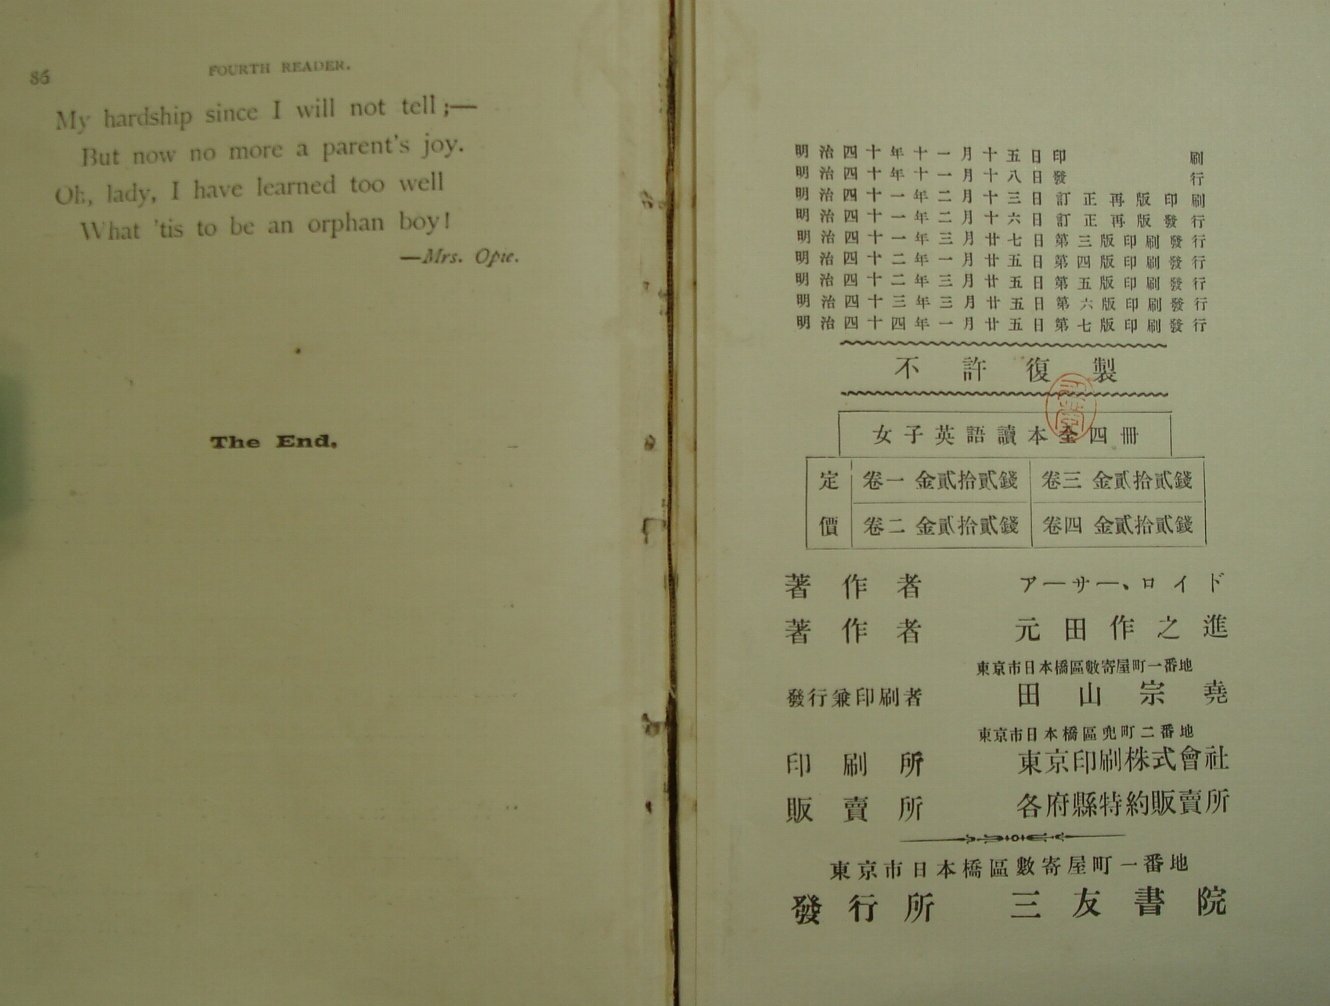 86
FOURTH READER.
My hardship since I will not tell;—
But now no more a parent's joy.
Oh, lady, I have learned too well
What 'tis to be an orphan boy!
—Mrs. Opie.
The End.
明治四十年十一月十五日印刷
明治四十年十一月十八日發行
明治四十一年二月十三日訂正再版印刷
明治四十一年二月十六日訂正再版發行
明治四十一年三月廿七日第三版印刷發行
明治四十二年一月廿五日第四版印刷發行
明治四十二年三月廿五日第五版印刷發行
明治四十三年三月廿五日第六版印刷發行
明治四十四年一月廿五日第七版印刷發行
不許復製
女子英語讀本全四冊
定價
卷一 金貳拾貳錢 卷三 金貳拾貳錢
卷二 金貳拾貳錢 卷四 金貳拾貳錢
著作者 アーサー、ロイド
著作者 元田作之進
東京市日本橋區數寄屋町一番地
發行兼印刷者 田山宗堯
東京市日本橋區兜町二番地
印刷所 東京印刷株式會社
販賣所 各府縣特約販賣所
東京市日本橋區數寄屋町一番地
發行所 三友書院